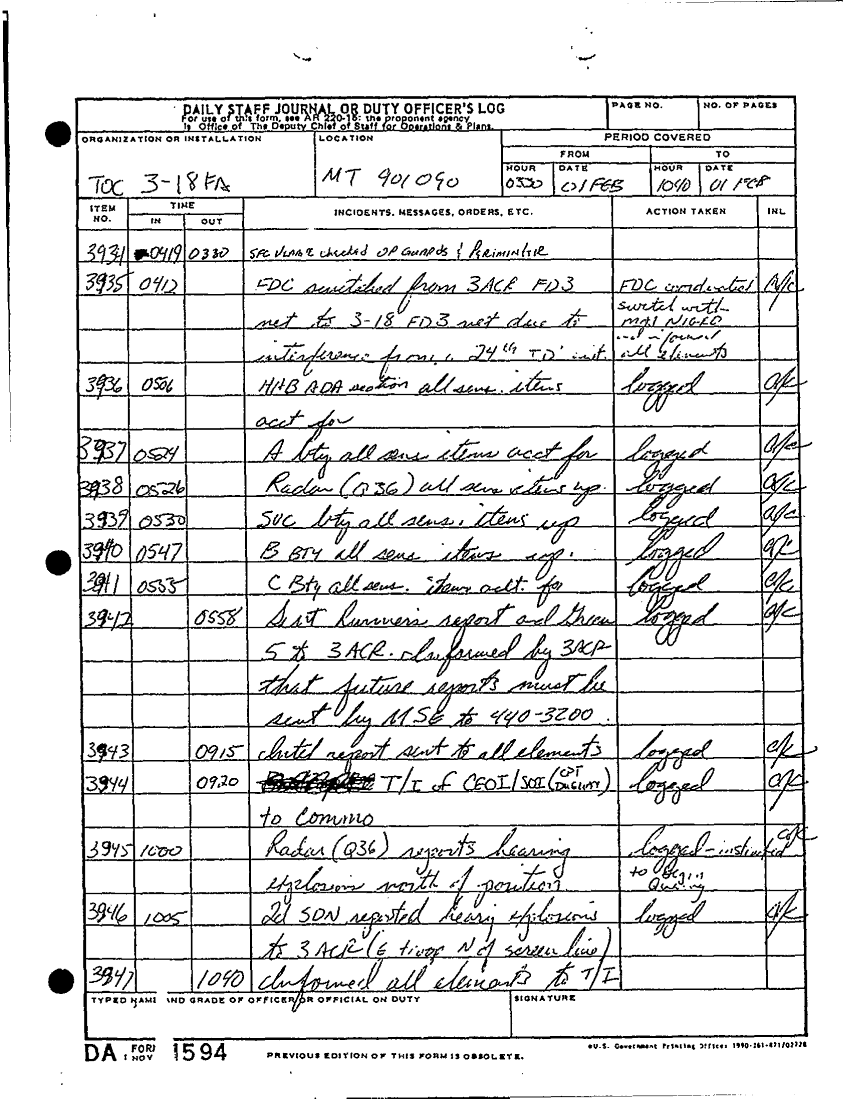 DAILY STAFF JOURNAL OR DUTY OFFICER'S LOG
For use of this form, see AR 220-15: the proponent agency
is Office of The Deputy Chief of Staff for Operations & Plans.
PAGE NO.
NO. OF PAGES
ORGANIZATION OR INSTALLATION
TOC 3-18 FA
LOCATION
MT 901090
PERIOD COVERED
FROM
TO
HOUR DATE HOUR DATE
0330 01 FEB 1040 01 FEB
ITEM NO. TIME IN OUT INCIDENTS, MESSAGES, ORDERS, ETC. ACTION TAKEN INL
3934 0419 0330 SFC checked OP GUARDS & PERIMITER
3935 0412 FDC switched from 3ACR FD3 FDC coordinated
net to 3-18 FD3 net due to switch with MAJ
interference from a 24th ID unit. and informed all elements
3936 0506 HHB ADA section all sens. items logged
acct for
3937 0524 A bty all sens items acct for logged
3938 0526 Radar (Q36) all sens items up. logged
3939 0530 SVC bty all sens. items up logged
3940 0547 B BTY all sens items up. logged
3941 0555 C Bty all sens. items acct. for logged
3942 0558 Sent Runners report and Green logged
5 to 3ACR. Informed by 3ACR
that future reports must be
sent by MSE to 440-3200.
3943 0915 Intel report sent to all elements logged
3944 0920 T/I of CEOI/SOI (CPT ) logged
to Commo
3945 1000 Radar (Q36) reports hearing logged - instructed
explosion north of position to begin Queing
3946 1005 2d SDN reported heavy explosions logged
to 3ACR (6 N of screen line)
3947 1040 Informed all elements to T/I
TYPED NAME AND GRADE OF OFFICER OR OFFICIAL ON DUTY
SIGNATURE
DA FORM 1 NOV 1594
PREVIOUS EDITION OF THIS FORM IS OBSOLETE.
U.S. Government Printing Office: 1990-261-871/02728